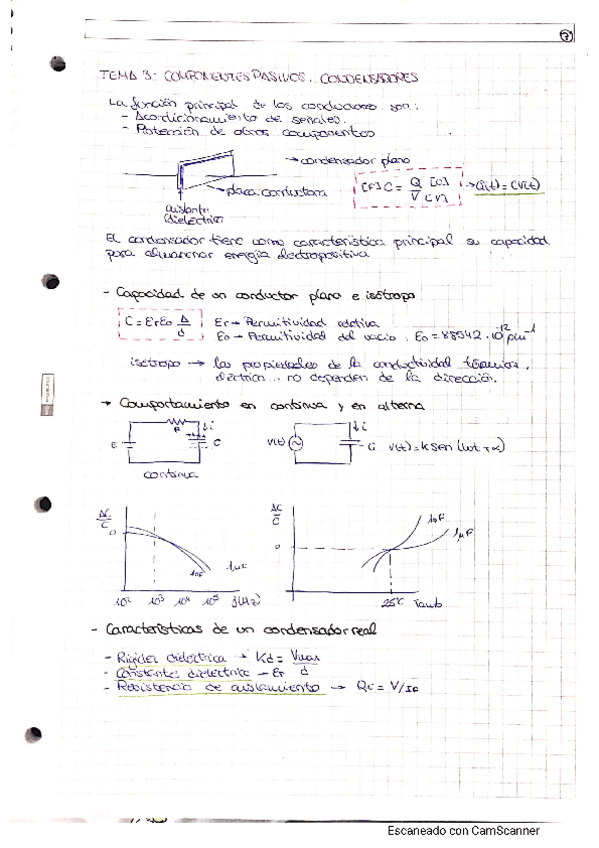 TEMA 3: COMPONENTES PASIVOS. CONDENSADORES
La función principal de los conductores son:
- Acondicionamiento de señales.
- Protección de otros componentes
→ condensador plano
→ placa conductora
aislante
(dieléctrico)
[F] C = Q/V [C]/[V] → Q(t) = CV(t)
El condensador tiene como característica principal su capacidad
para almacenar energía electropositiva
- Capacidad de un conductor plano e isótropo
C = ErEo A/d Er → Permitividad relativa
Eo → Permitividad del vacio. Eo = 8'8542·10⁻¹²
isótropo → las propiedades de la conductividad térmica,
eléctrica... no dependen de la dirección.
→ Comportamiento en continua y en alterna
E R ↓i C
V(t) ↓i C V(t) = K sen (wt + α)
continua
ΔC/C 0 10F 1µF
10² 10³ 10⁴ 10⁵ f(Hz)
ΔC/C 0 10F 1µF
25ºC Tamb
- Características de un condensador real
- Rigidez dieléctrica → Kd = Vmax/d
- Constante dieléctrica → Er
- Resistencia de aislamiento →
Escaneado con CamScanner